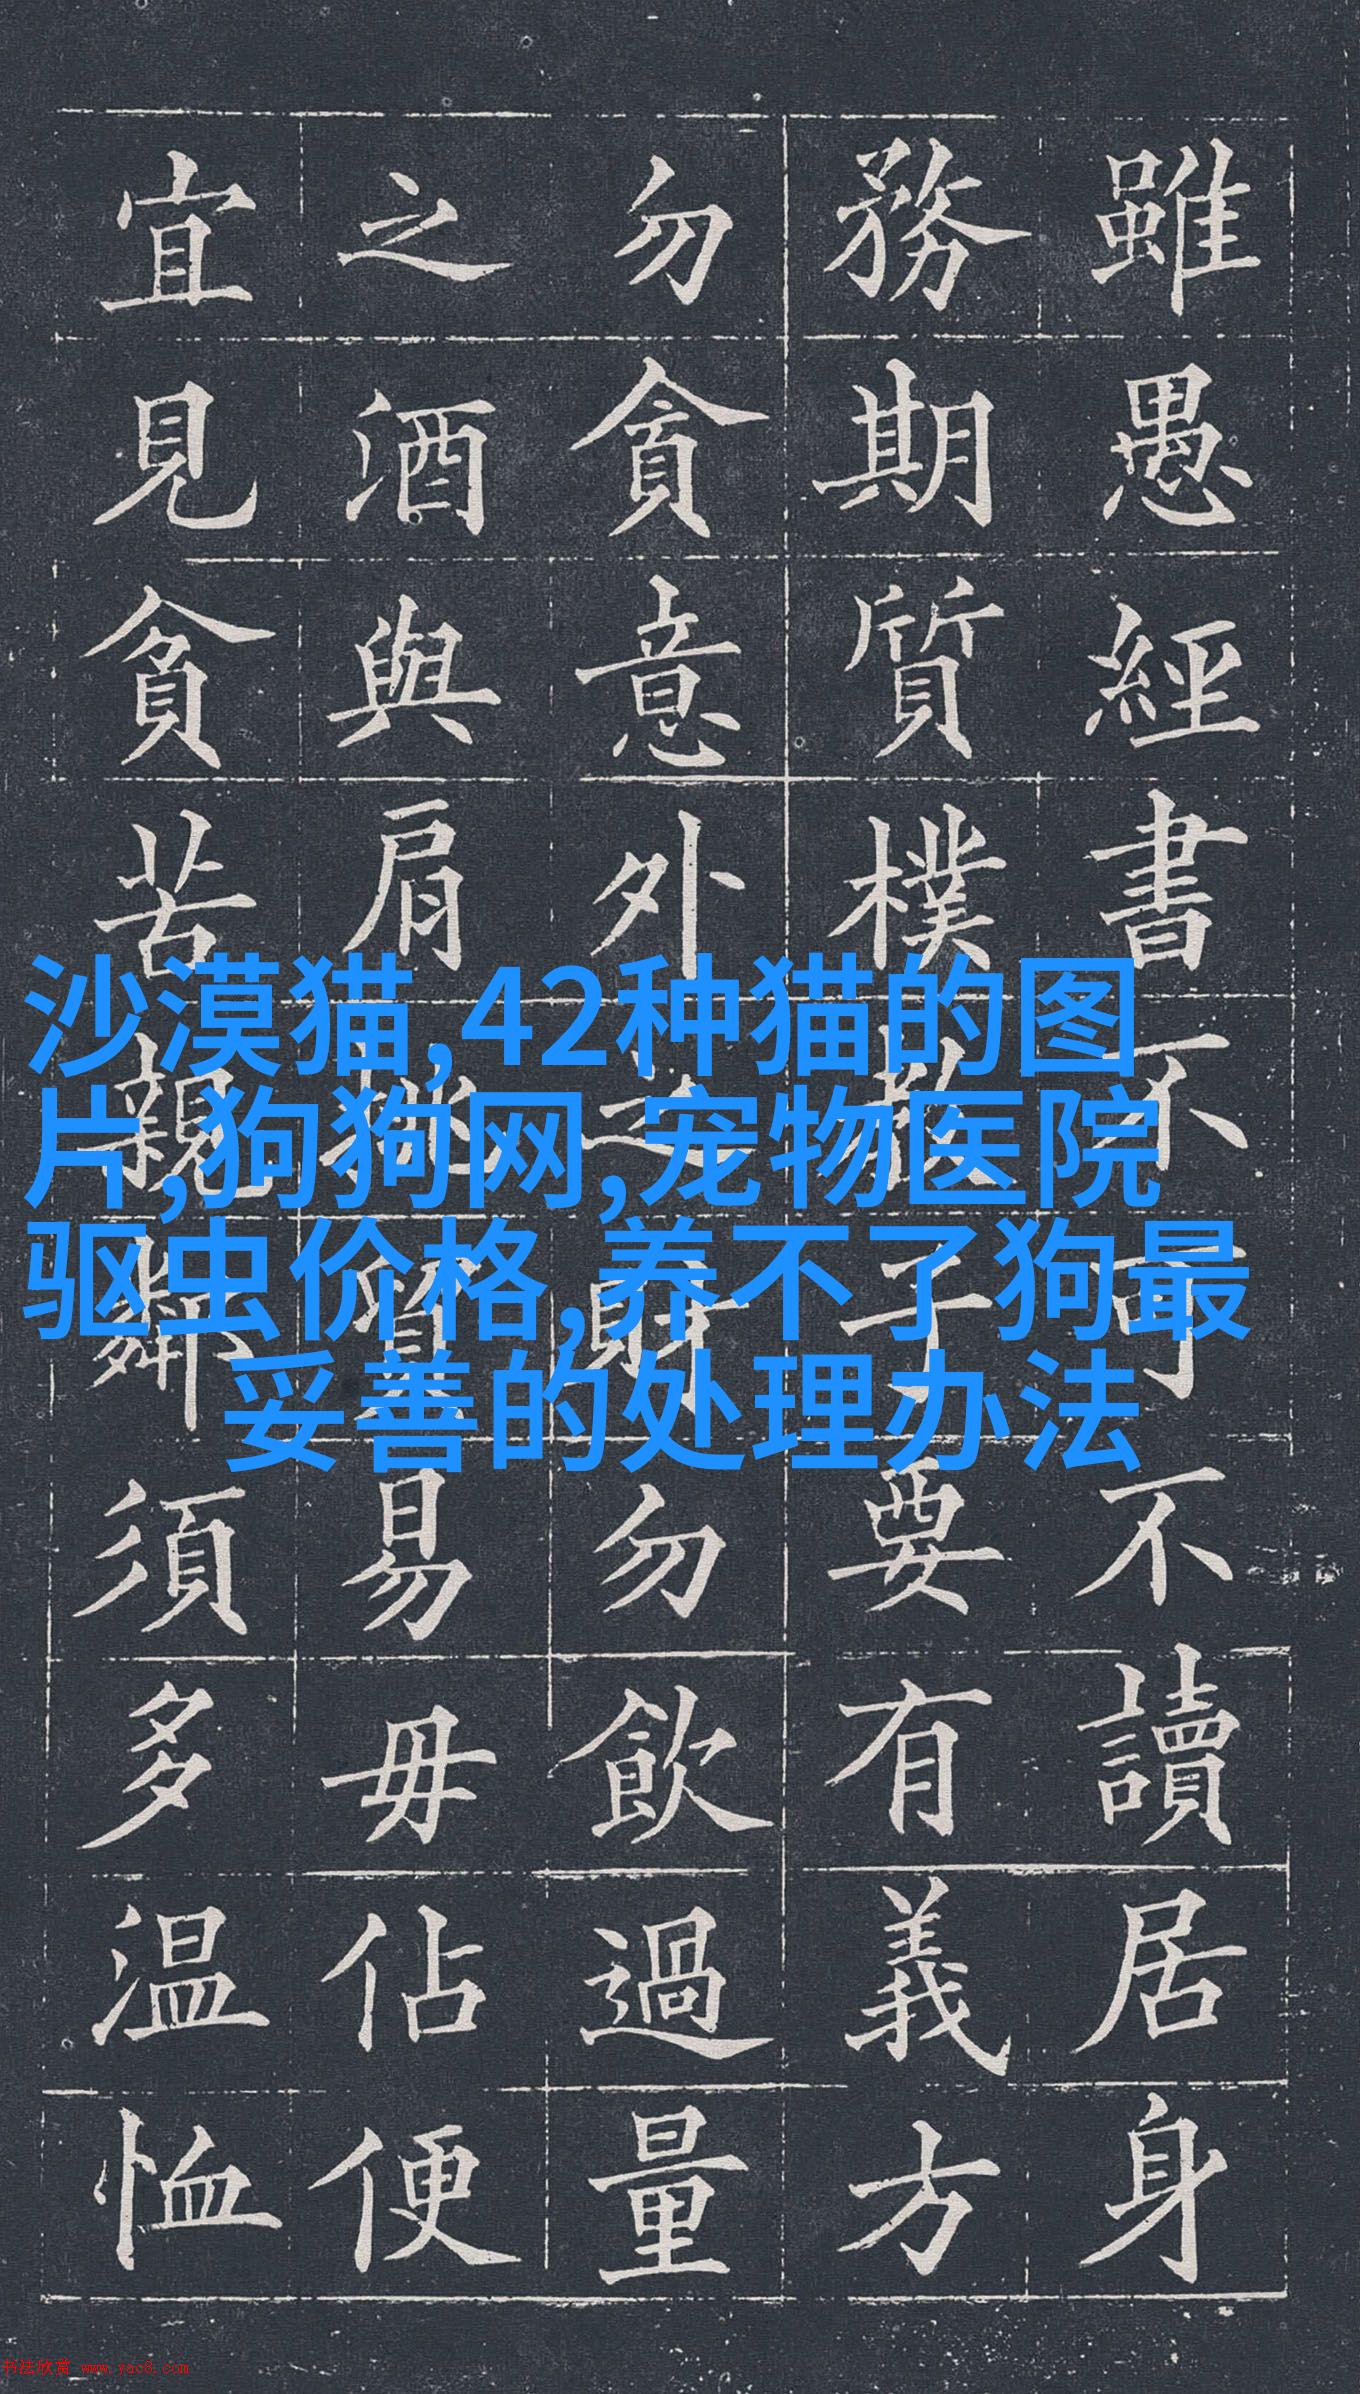 雖愚經書不可不讀居身
務期質樸教子要有義方
勿貪意外之財勿飲過量
之酒與肩挑貿易毋佔便
宜見貧苦親鄰須多温恤
沙漠猫,42种猫的图
片,狗狗网,宠物医院
驱虫价格,养不了狗最
妥善的处理办法
书法欣赏 www.yac8.com